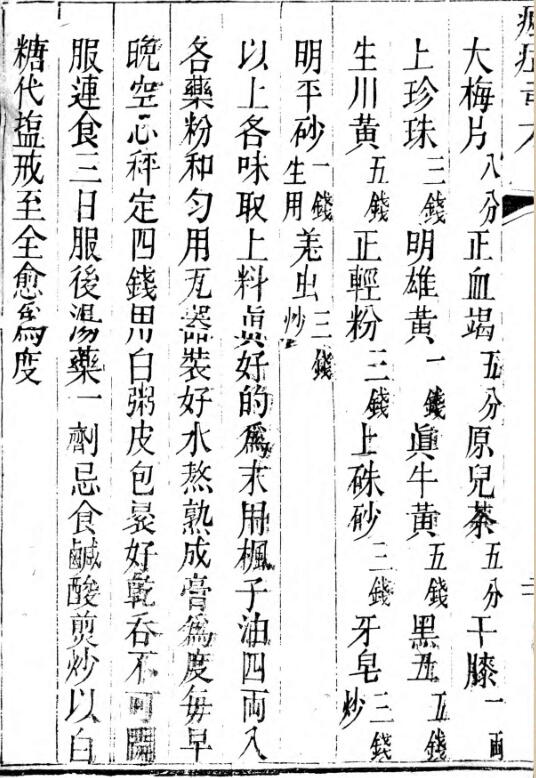 大梅片八分正血竭五分原兒茶五分干膝一両
上珍珠三錢明雄黃一錢眞牛黃五錢黑丑五錢
生川黃五錢正輕粉三錢上硃砂三錢牙皂炒三錢
明平砂一錢生用羗虫炒三錢
以上各味取上料眞好的爲末用楓子油四両入
各藥粉和匀用瓦器裝好水熬熟成膏爲度每早
晚空心秤定四錢用白粥皮包裹好乾吞不可開
服連食三日服後湯藥一劑忌食鹹酸煎炒以白
糖代塩戒至全愈爲度